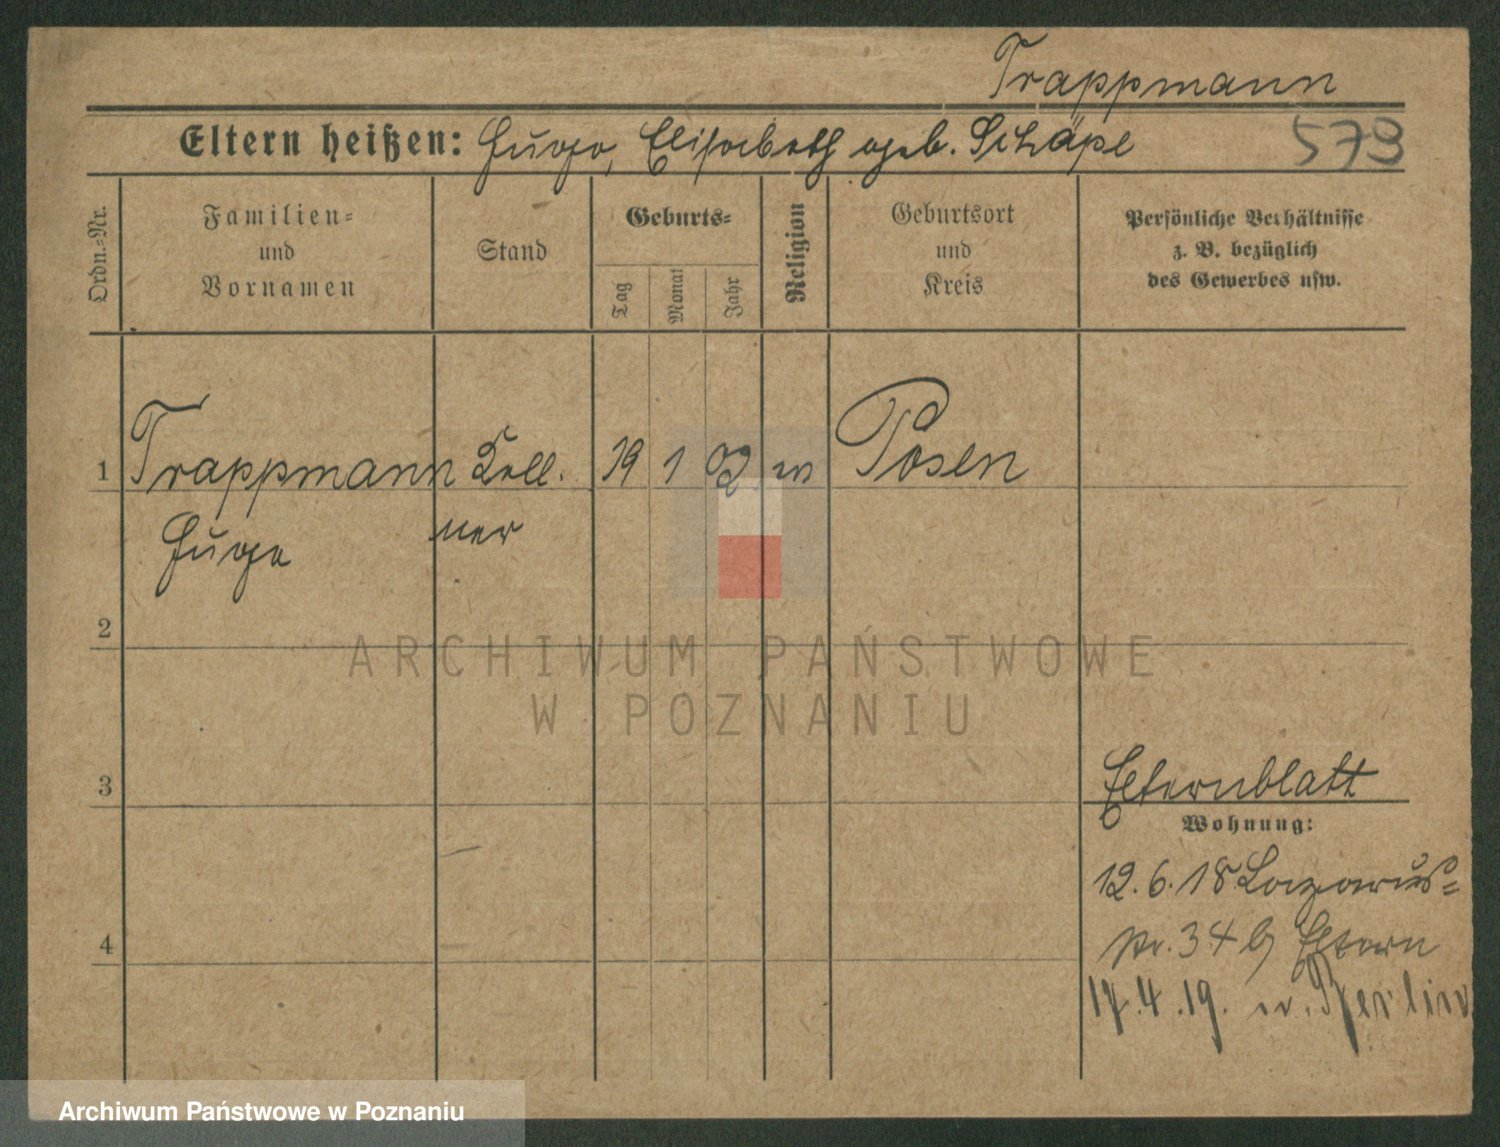 Trappmann
Eltern heißen: Hugo, Elisabeth geb. Schäpe
579
Ordn.-Nr.
Familien-
und
Vornamen
Stand
Geburts-
Tag
Monat
Jahr
Religion
Geburtsort
und
Kreis
Persönliche Verhältnisse
z. B. bezüglich
des Gewerbes usw.
1 Trappmann Kell. 19 1 02 Posen
Hugo ner
2
ARCHIWUM PAŃSTWOWE
W POZNANIU
3
Elternblatt
Wohnung:
12.6.18 Lazarus-
str. 34 b Eltern
4
17.4.19. n. Berlin
Archiwum Państwowe w Poznaniu